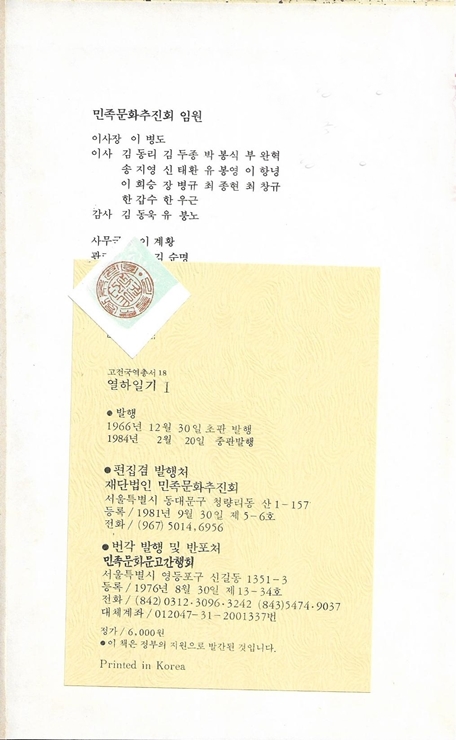 민족문화추진회 임원
이사장 이 병도
이사 김 동리 김 두종 박 봉식 부 완혁
송 지영 신 태환 유 봉영 이 항녕
이 희승 장 병규 최 종현 최 창규
한 갑수 한 우근
감사 김 동욱 유 봉노
사무 이 계황
김 순명
고전국역총서 18
열하일기 I
● 발행
1966년 12월 30일 초판 발행
1984년 2월 20일 중판발행
● 편집겸 발행처
재단법인 민족문화추진회
서울특별시 동대문구 청량리동 산 1-157
등록/1981년 9월 30일 제 5-6호
전화/(967) 5014.6956
● 번각 발행 및 반포처
민족문화문고간행회
서울특별시 영등포구 신길동 1351-3
등록/1976년 8월 30일 제 13-34호
전화/(842) 0312·3096·3242 (843) 5474·9037
대체계좌/012047-31-2001337번
정가/6,000원
● 이 책은 정부의 지원으로 발간된 것입니다.
Printed in Korea